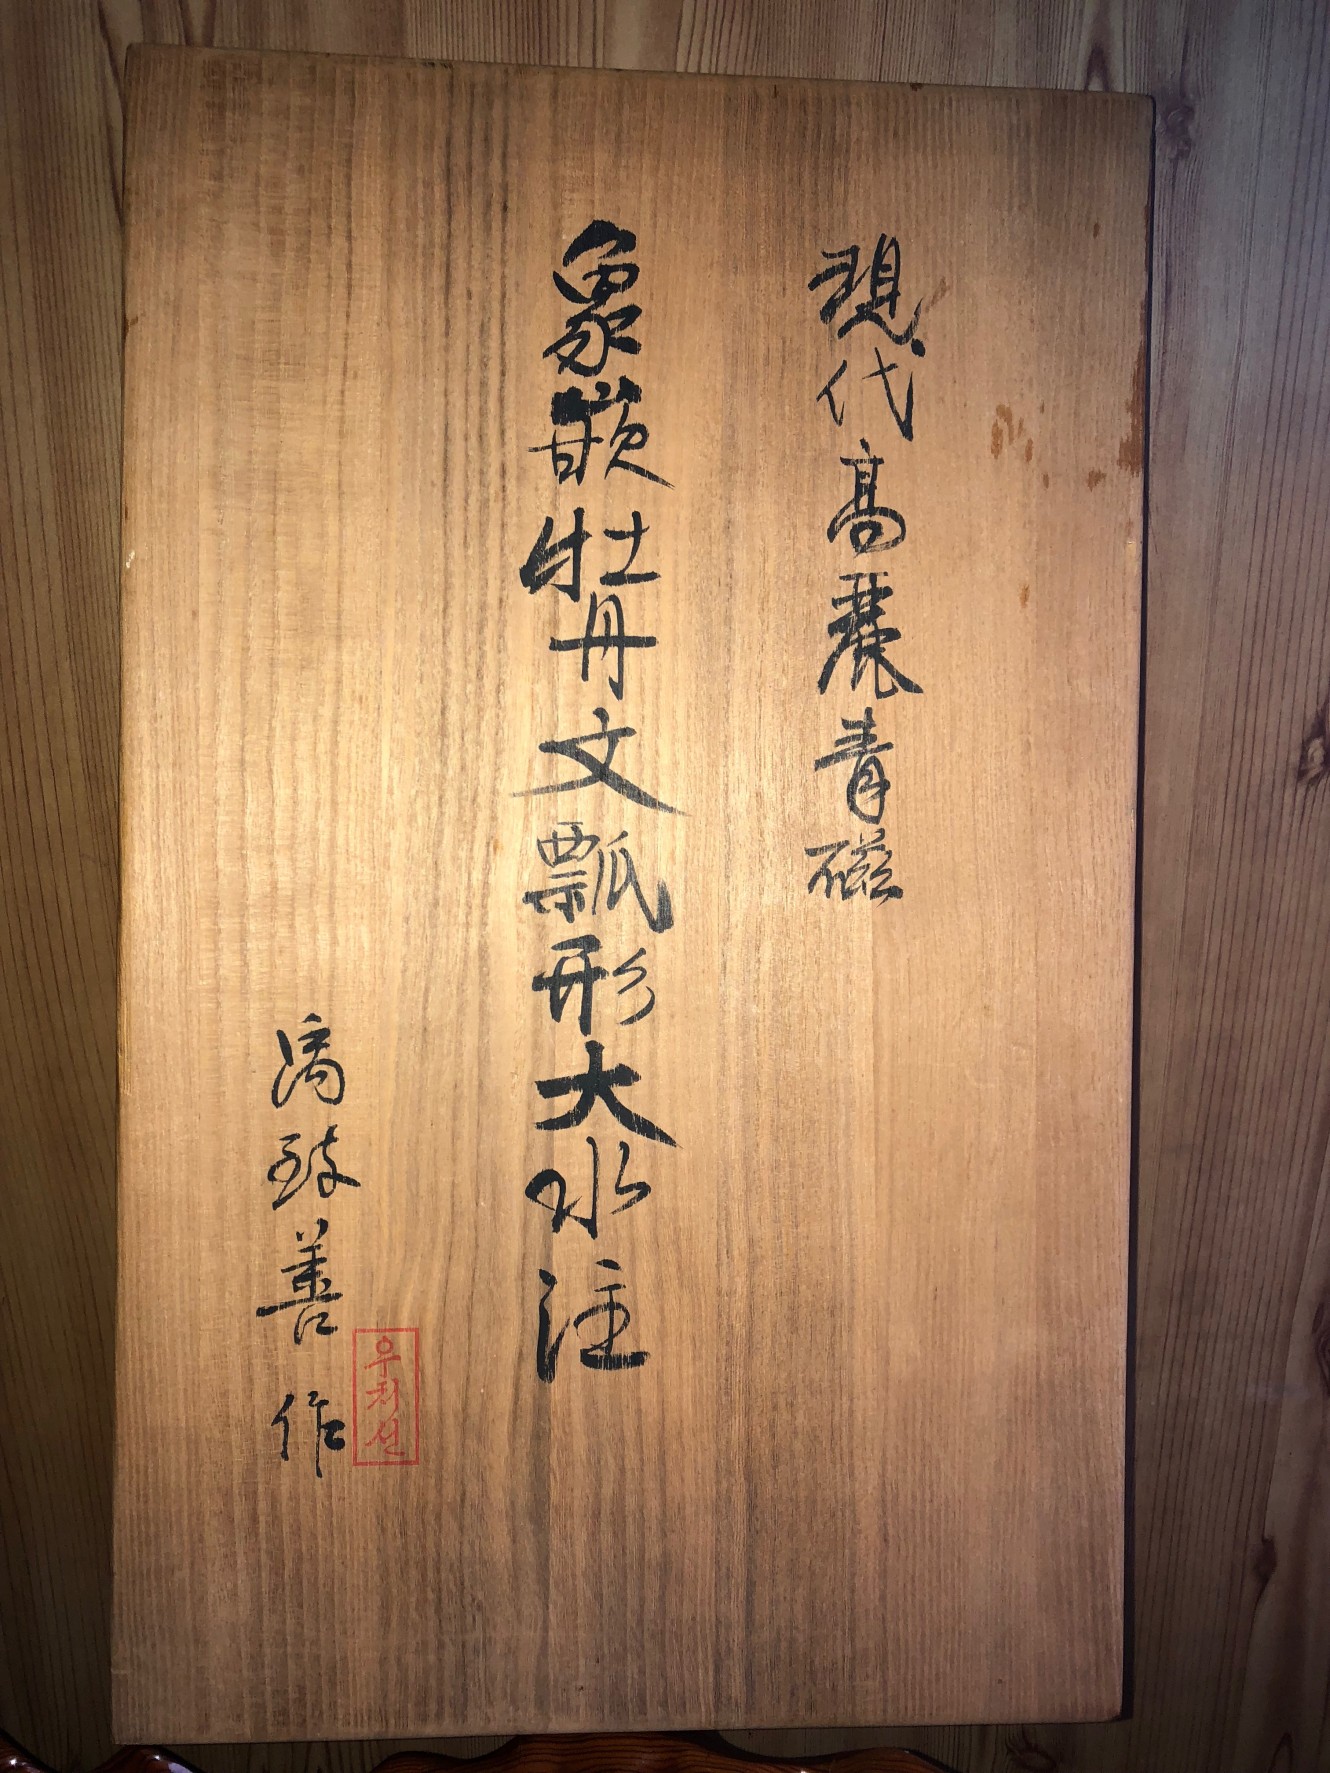 現代高麗青磁
象嵌牡丹文瓢形大水注
禹致善作
우치선